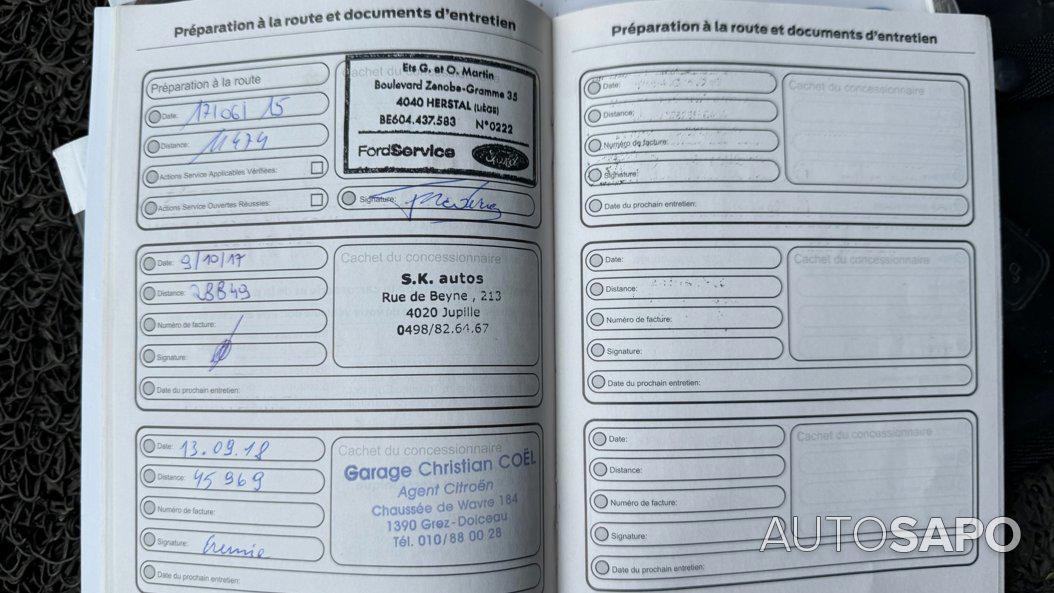 Préparation à la route et documents d'entretien
Préparation à la route
Date: 17/06/15
Distance: 11474
Actions Service Applicables Vérifiées:
Actions Service Ouvertes Réussies:
Cachet du
Ets G. et O. Martin
Boulevard Zenobe-Gramme 35
4040 HERSTAL (LIEGE)
BE604.437.583 N°0222
FordService
Ford
Signature:
Date: 9/10/17
Distance: 28849
Numéro de facture:
Signature:
Date du prochain entretien:
Cachet du concessionnaire
S.K. autos
Rue de Beyne , 213
4020 Jupille
0498/82.64.67
Date: 13.09.18
Distance: 45969
Numéro de facture:
Signature:
Date du prochain entretien:
Cachet du concessionnaire
Garage Christian COËL
Agent Citroën
Chaussée de Wavre 184
1390 Grez-Doiceau
Tél. 010/88 00 28
Préparation à la route et documents d'entretien
Date:
Distance:
Numéro de facture:
Signature:
Date du prochain entretien:
Cachet du concessionnaire
Date:
Distance:
Numéro de facture:
Signature:
Date du prochain entretien:
Cachet du concessionnaire
Date:
Distance:
Numéro de facture:
Signature:
Date du prochain entretien:
Cachet du concessionnaire
AUTOSAPO